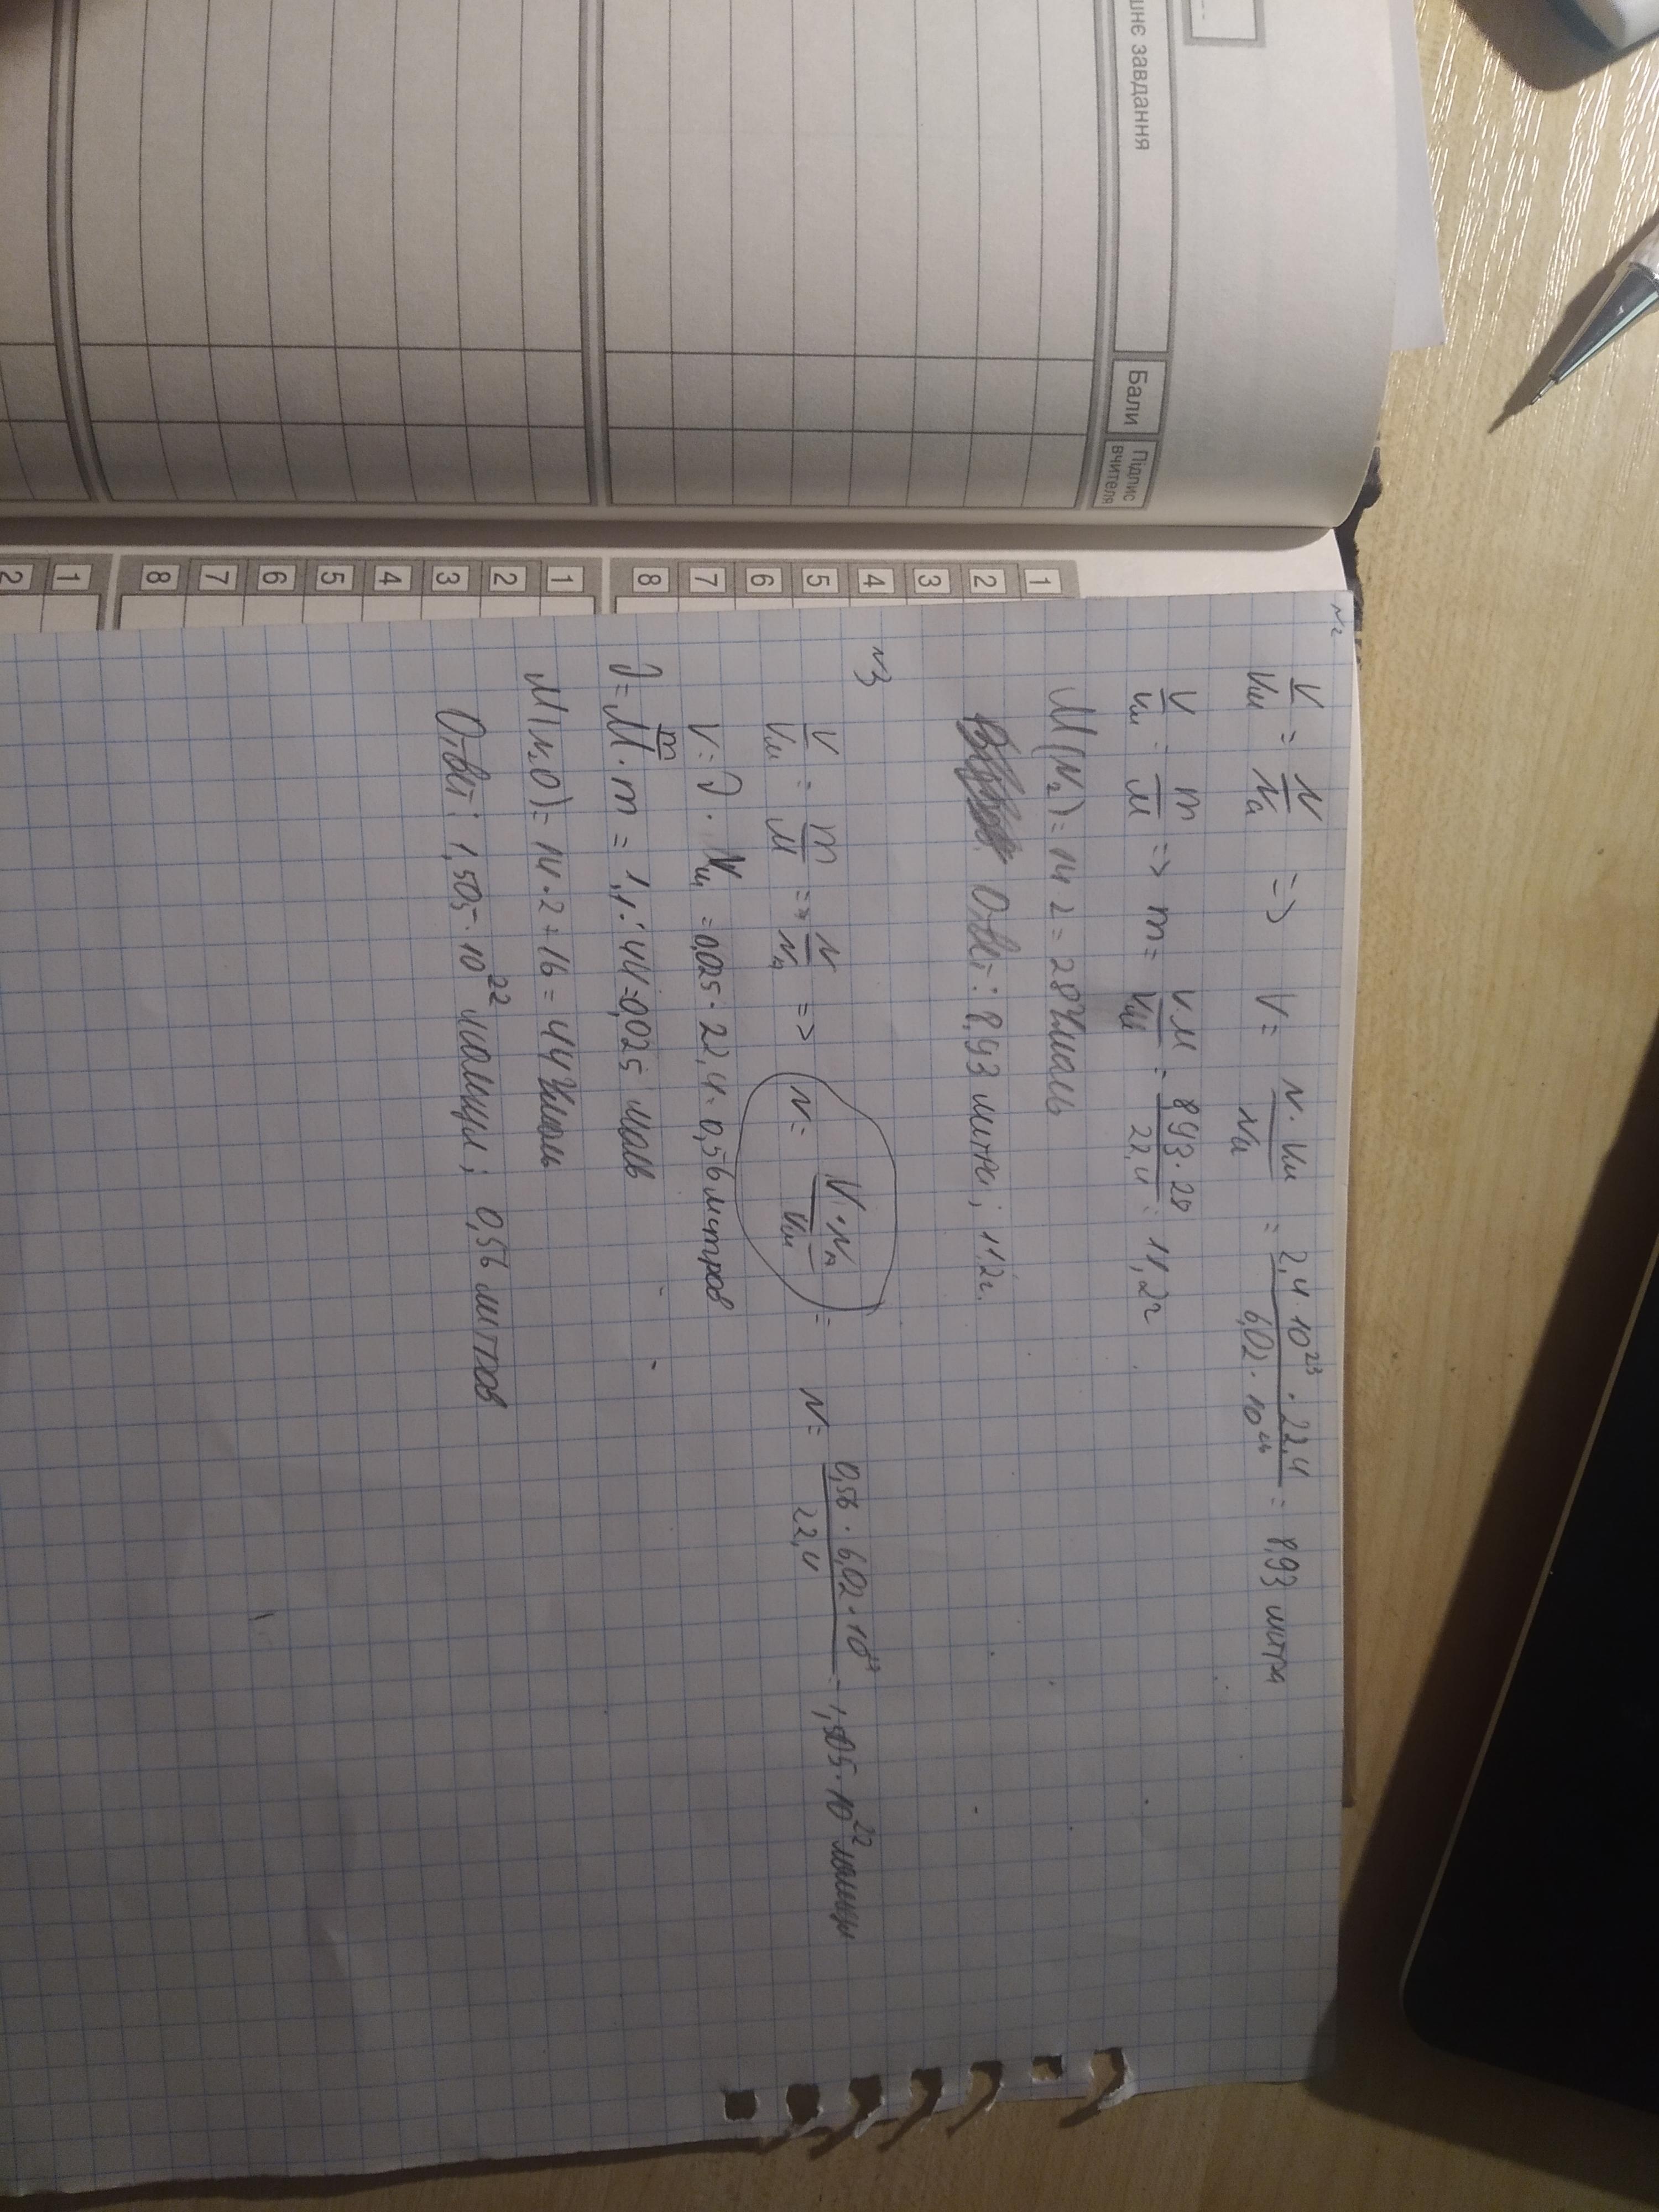 шнє завдання
Бали
Підпис вчителя
1
2
3
4
5
6
7
8
1
2
3
4
5
6
7
8
1
2
№2
V/Vм = N/Nа => V = N·Vм/Nа = 2,4·10²³·22,4/6,02·10²³ = 8,93 литра
V/Vм = m/M => m = VM/Vм = 8,93·28/22,4 = 11,2г
M(N₂) = 14·2 = 28г/моль
Ответ: 8,93 литра; 11,2г.
№3
V/Vм = m/M = N/Nа => N = V·Nа/Vм = N = 0,56·6,02·10²³/22,4 = 1,505·10²² молекул
V = ν·Vм = 0,025·22,4 = 0,56 литров
ν = m/M · m = 1,1:44 = 0,025 моль
M(N₂O) = 14·2+16 = 44г/моль
Ответ: 1,505·10²² молекул; 0,56 литров